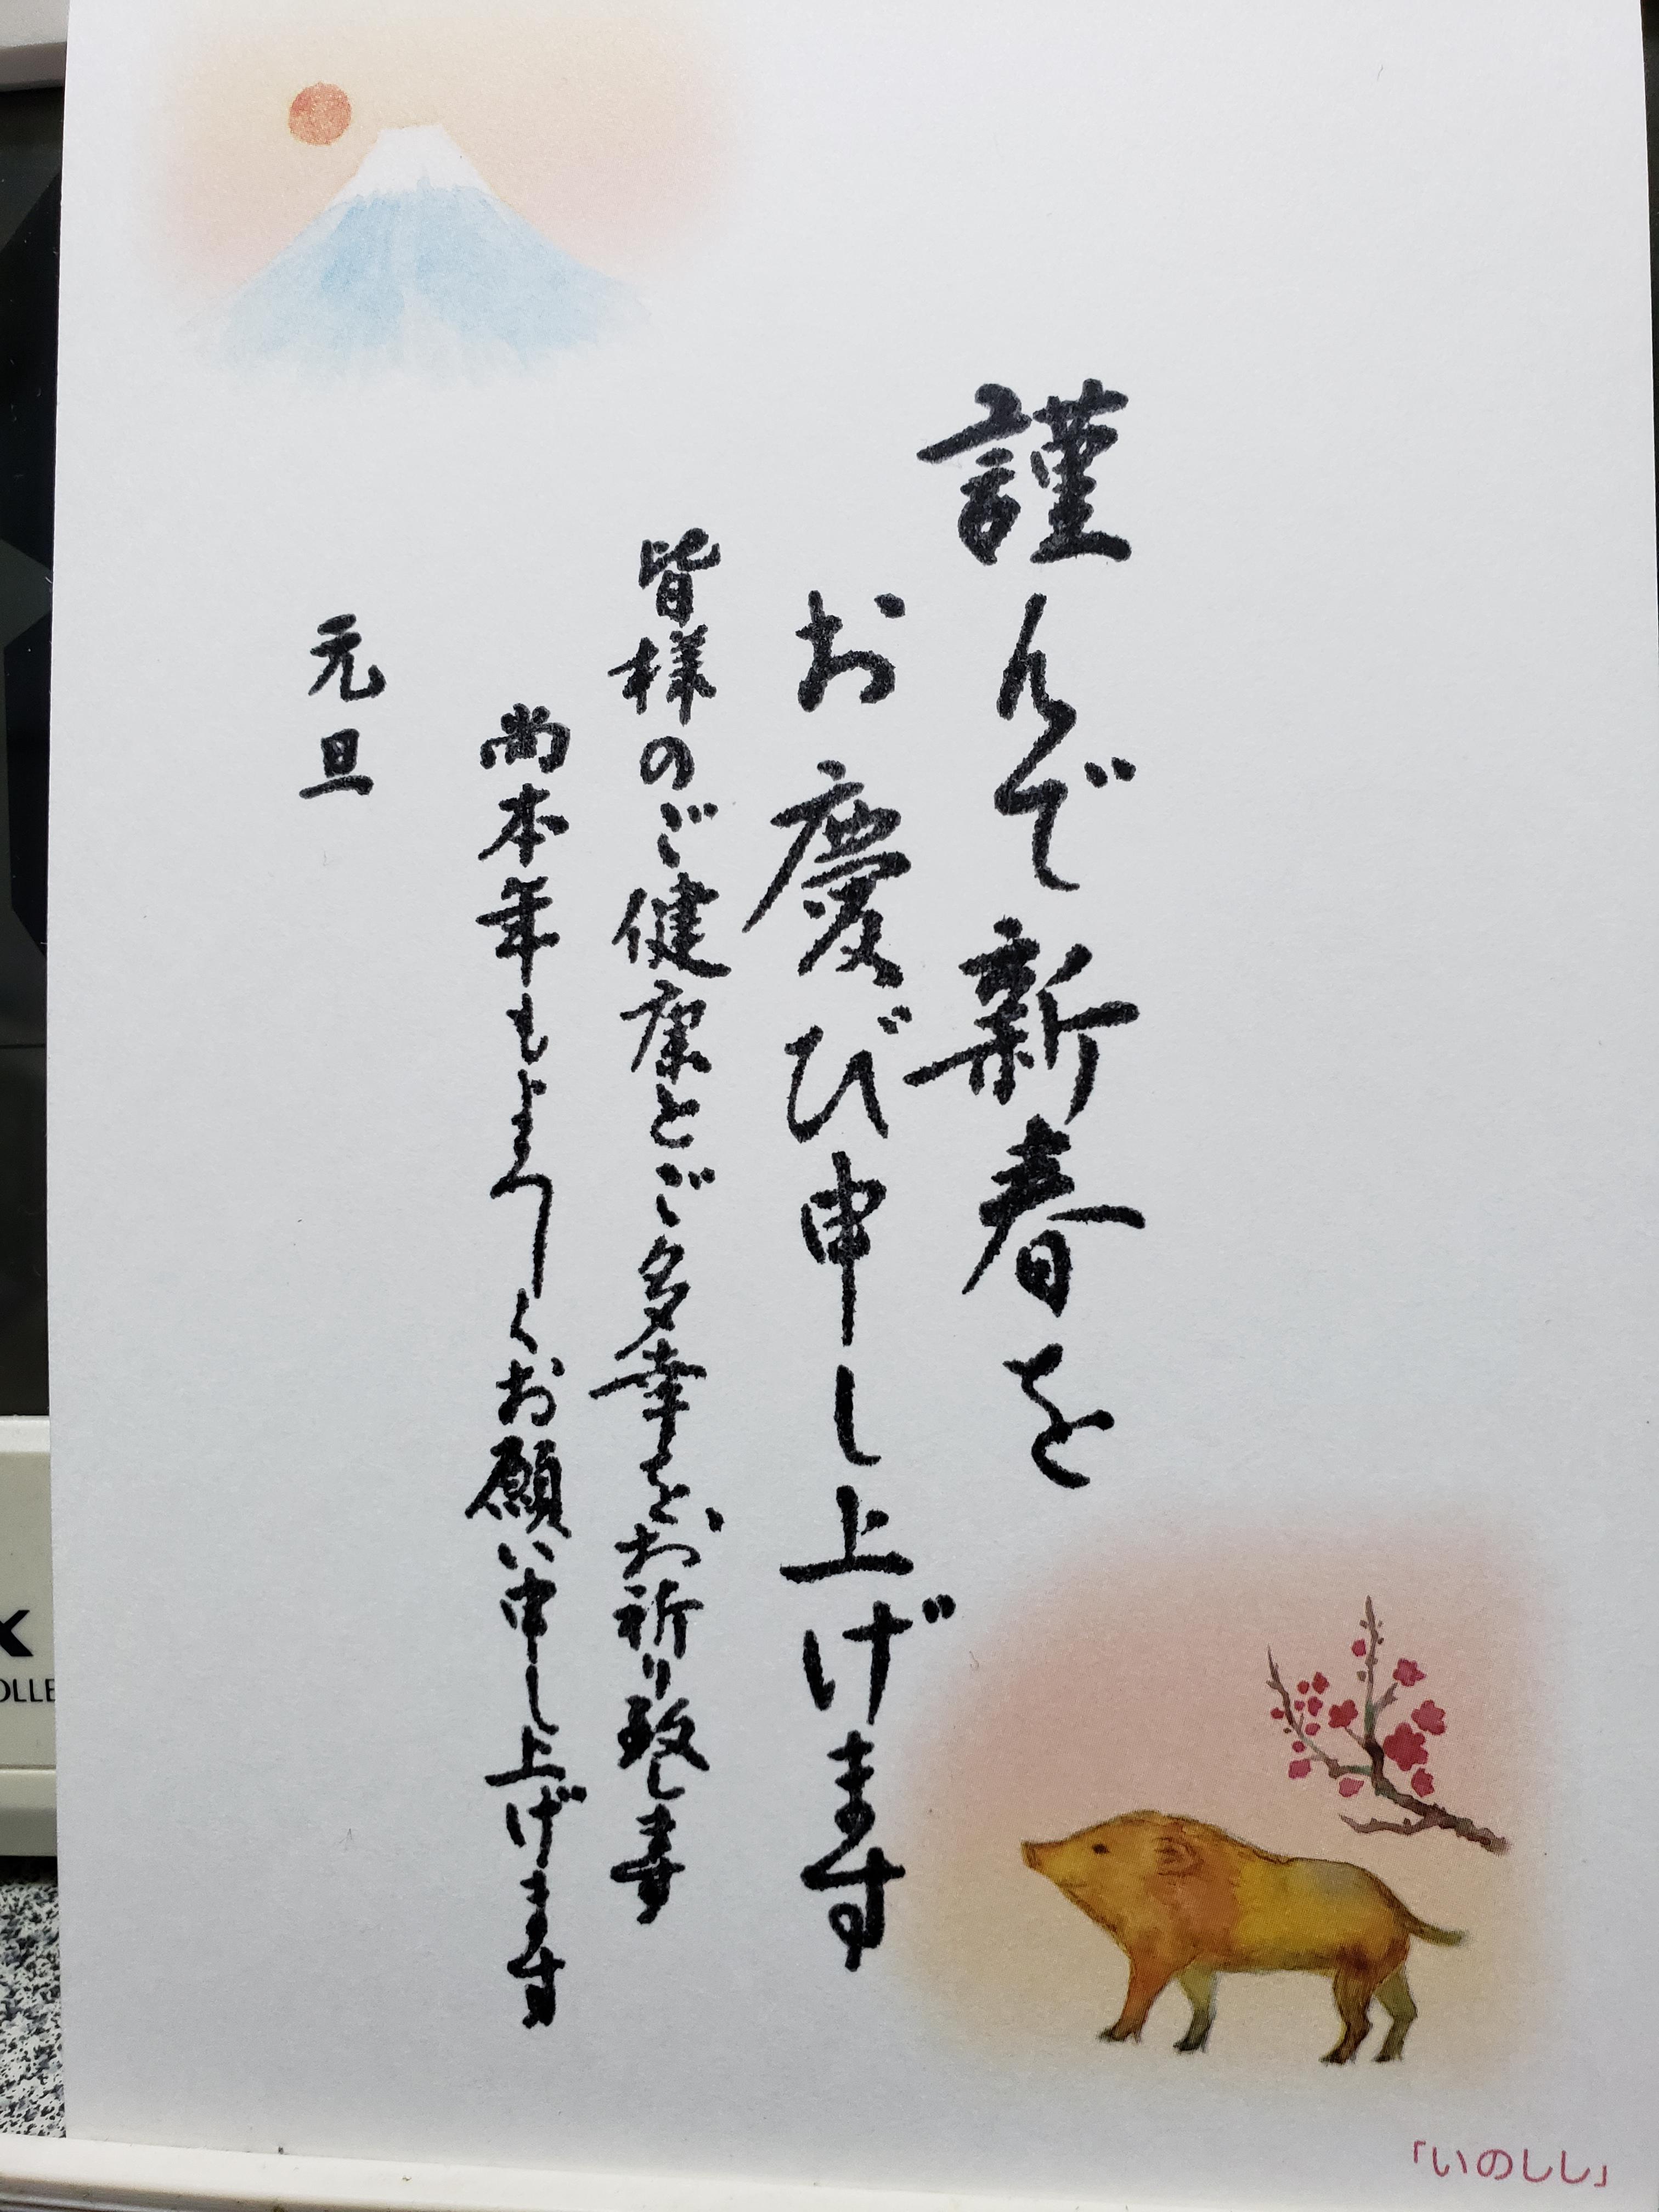 謹んで新春を
お慶び申し上げます
皆様のご健康とご多幸をお祈り致します
尚本年もよろしくお願い申し上げます
元旦
「いのしし」
OLLE